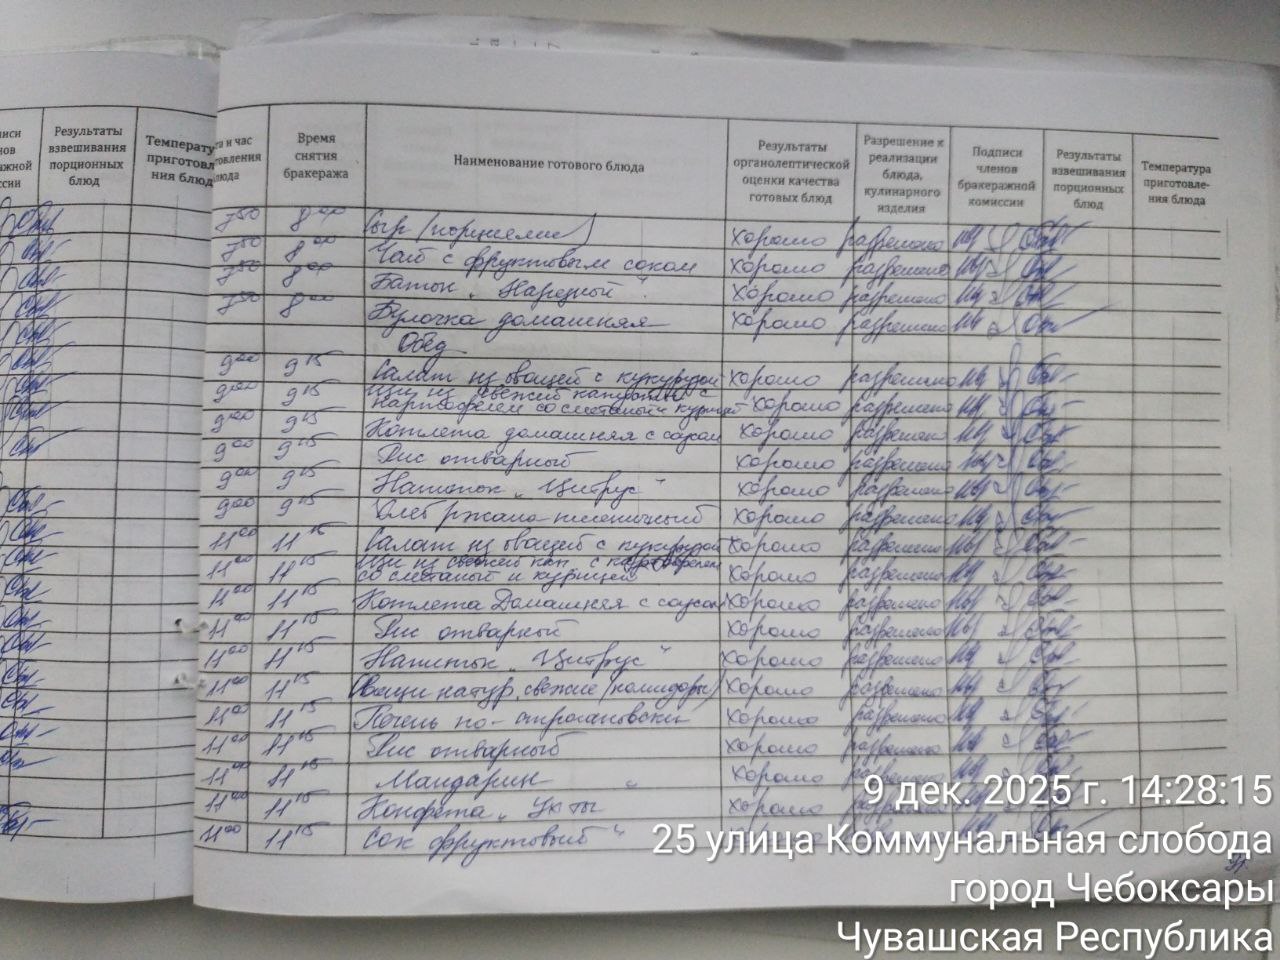 Результаты взвешивания порционных блюд
Температу приготовл ния блюд
та и час
товления
блюда
Время снятия бракеража
Наименование готового блюда
Результаты органолептической оценки качества готовых блюд
Разрешение к реализации блюда, кулинарного изделия
Подписи членов бракеражной комиссии
Результаты взвешивания порционных блюд
Температура приготовле-ния блюда
7⁵⁰ 8⁰⁰ Сыр (порциями) хорошо разрешено
7⁵⁰ 8⁰⁰ Чай с фруктовым соком хорошо разрешено
7⁵⁰ 8⁰⁰ Батон „Нарезной" хорошо разрешено
7⁵⁰ 8⁰⁰ Булочка домашняя хорошо разрешено
Обед
9⁰⁰ 9¹⁵ Салат из овощей с кукурузой хорошо разрешено
9⁰⁰ 9¹⁵ Щи из свежей капусты с
картофелем со сметаной и курицей хорошо разрешено
9⁰⁰ 9¹⁵ Котлета домашняя с соусом хорошо разрешено
9⁰⁰ 9¹⁵ Рис отварной хорошо разрешено
9⁰⁰ 9¹⁵ Напиток „Цитрус" хорошо разрешено
9⁰⁰ 9¹⁵ Хлеб ржано-пшеничный хорошо разрешено
11⁰⁰ 11¹⁵ Салат из овощей с кукурузой хорошо разрешено
11⁰⁰ 11¹⁵ Щи из свежей кап. с картофелем
со сметаной и курицей хорошо разрешено
11⁰⁰ 11¹⁵ Котлета Домашняя с соусом хорошо разрешено
11⁰⁰ 11¹⁵ Рис отварной хорошо разрешено
11⁰⁰ 11¹⁵ Напиток „Цитрус" хорошо разрешено
11⁰⁰ 11¹⁵ Овощи натур. свежие (помидоры) хорошо разрешено
11⁰⁰ 11¹⁵ Печень по-строгановски хорошо разрешено
11⁰⁰ 11¹⁵ Рис отварной хорошо разрешено
11⁰⁰ 11¹⁵ Мандарин хорошо разрешено
11⁰⁰ 11¹⁵ Конфета „ хорошо разрешено
11⁰⁰ 11¹⁵ Сок фруктовый
9 дек. 2025 г. 14:28:15
25 улица Коммунальная слобода
город Чебоксары
Чувашская Республика